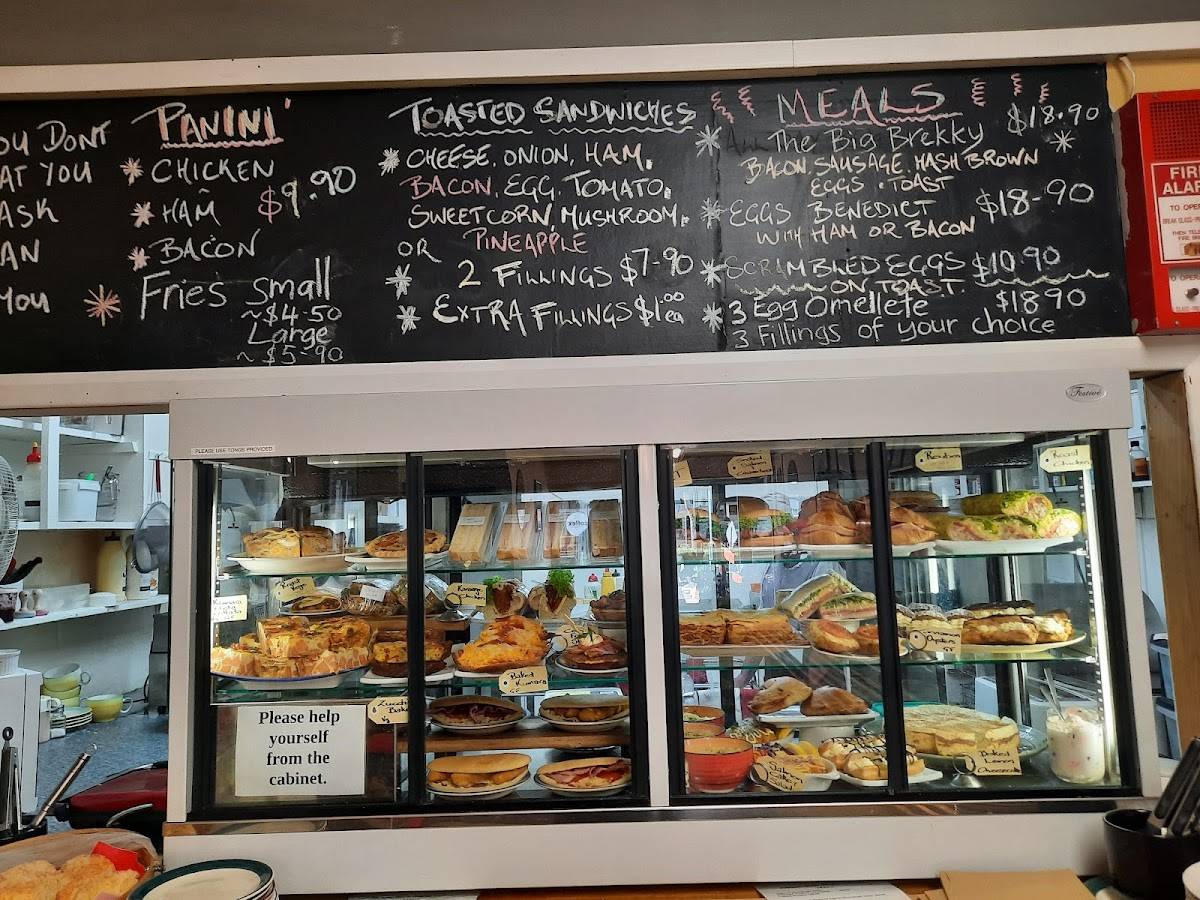 OU DONT
AT YOU
ASK
AN
YOU
PANINI'
* CHICKEN
* HAM $9.90
* BACON
Fries small
~$4-50
Large
~$5-90
TOASTED SANDWICHES
* CHEESE, ONION, HAM,
BACON, EGG, TOMATO,
SWEETCORN, MUSHROOM,
OR PINEAPPLE
* 2 FILLINGS $7-90
* EXTRA FILLINGS $1.00 ea
MEALS
* The Big Brekky $18.90 *
BACON, SAUSAGE, HASH BROWN
EGGS . TOAST
* EGGS BENEDICT $18-90
WITH HAM OR BACON
* SCRAMBLED EGGS $10.90
ON TOAST
* 3 Egg Omellete $18.90
3 Fillings of your choice
FIRE
ALARM
TO OPER
Festive
PLEASE USE TONGS PROVIDED
Smoked
Salmon
Reuben
Roast
Chicken
Kumara
Chicken
Baked
Kumara
GF
Cinnamon
Oysters
Please help
yourself
from the
cabinet.
Salmon
Baked
Lemon
Cheesecake